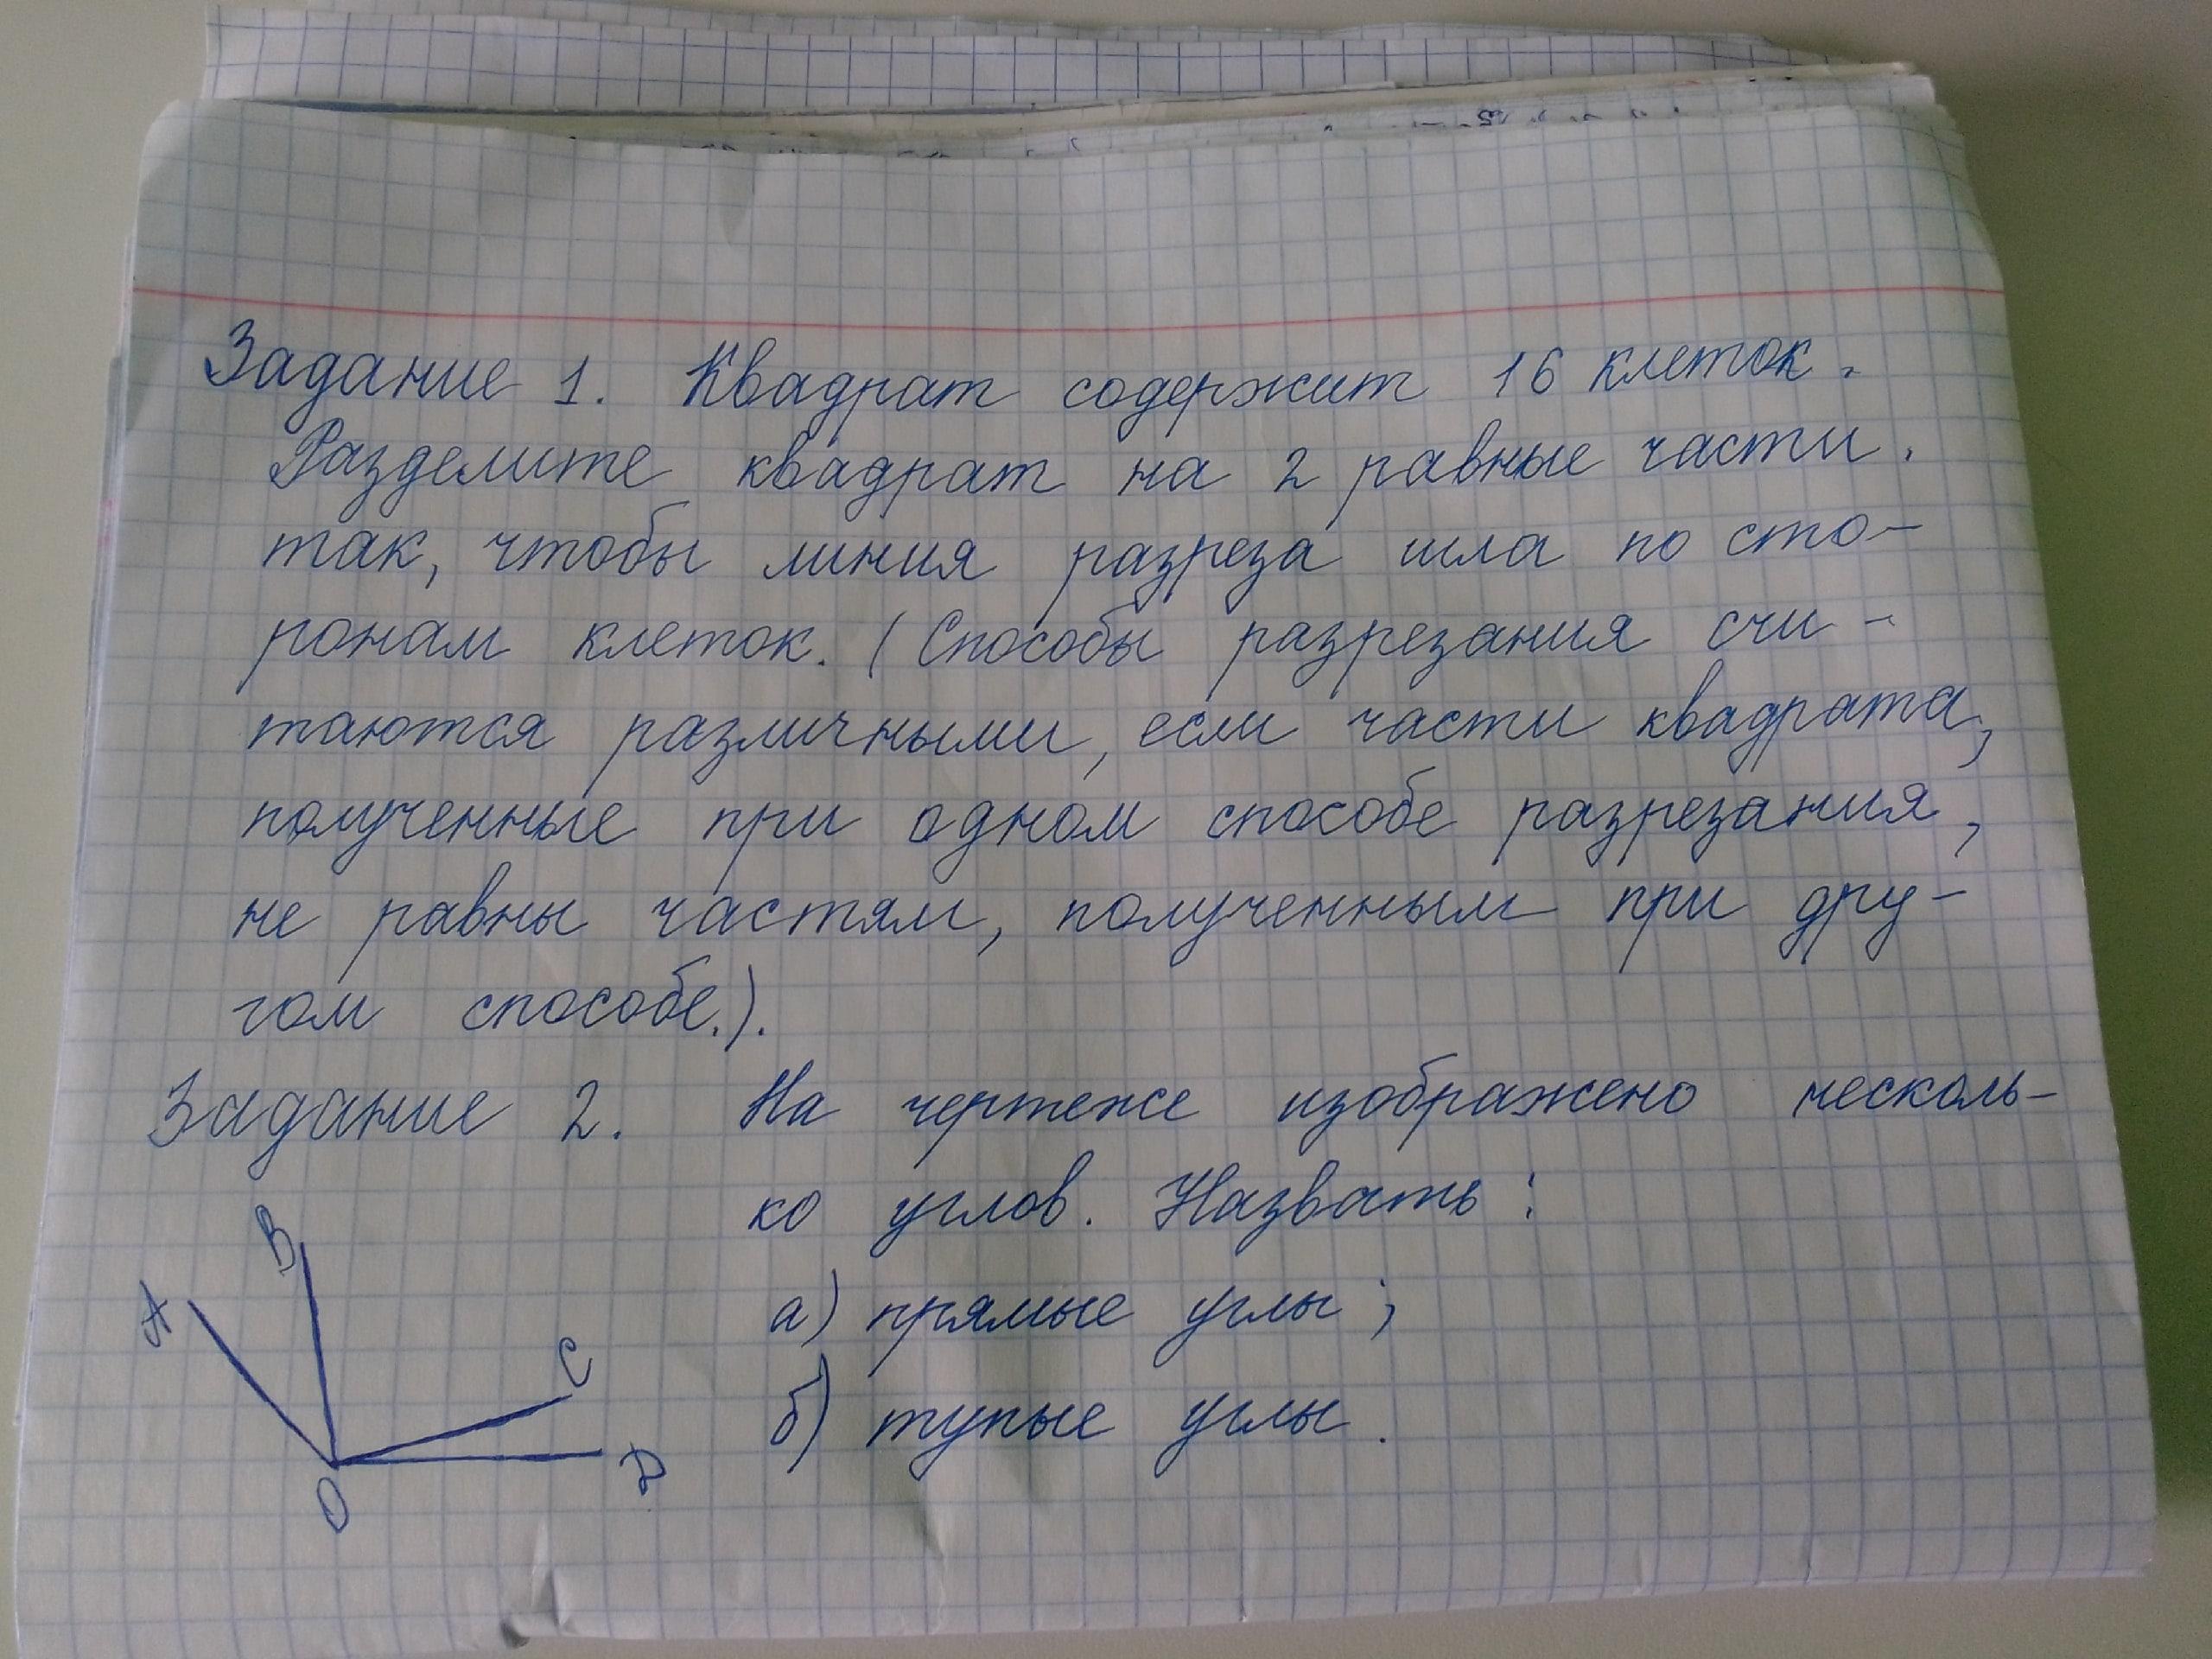 Задание 1. Квадрат содержит 16 клеток.
Разделите квадрат на 2 равные части.
так, чтобы линия разреза шла по сто-
ронам клеток. (Способы разрезания счи-
таются различными, если части квадрата,
полученные при одном способе разрезания,
не равны частям, полученным при дру-
гом способе.).
Задание 2. На чертеже изображено несколь-
ко углов. Назвать:
а) прямые углы;
б) тупые углы.
B
A
C
D
O